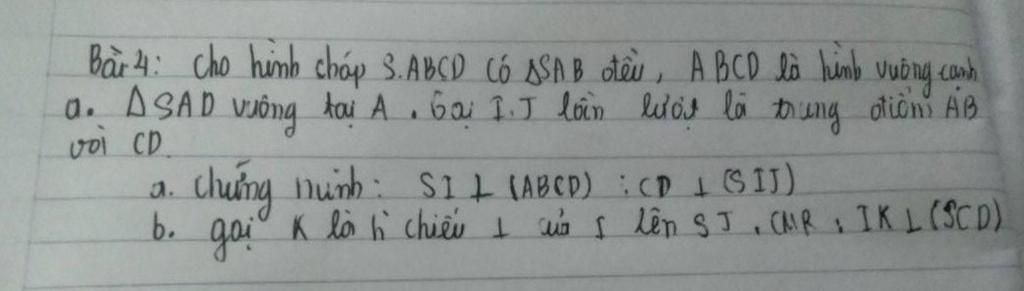 Bài 4: Cho hình chóp S.ABCD có ΔSAB đều, ABCD là hình vuông cạnh
a. ΔSAD vuông tại A. Gọi I.J lần lượt là trung điểm AB
với CD.
a. Chứng minh: SI ⊥ (ABCD) ; CD ⊥ (SIJ)
b. gọi K là h chiếu ⊥ của I lên SJ. CMR: IK ⊥ (SCD)